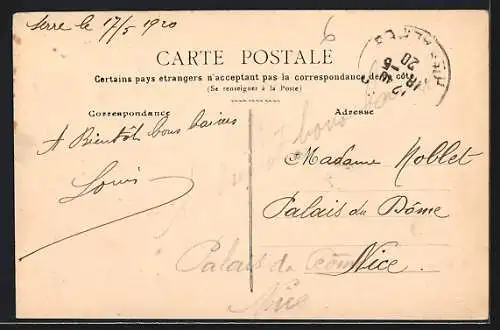 Serre le 17/5 1920
6
CARTE POSTALE
Certains pays étrangers n'acceptant pas la correspondance de ce côté
(Se renseigner à la Poste)
Correspondance
Adresse
A Bientôt bons baisers
Louis
Madame Noblet
Palais du Dôme
Nice.
Palais du Dôme
Nice
bons
12
5
20